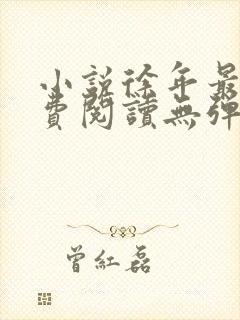 小說徐年最
費閱讀無彈
曾紅磊